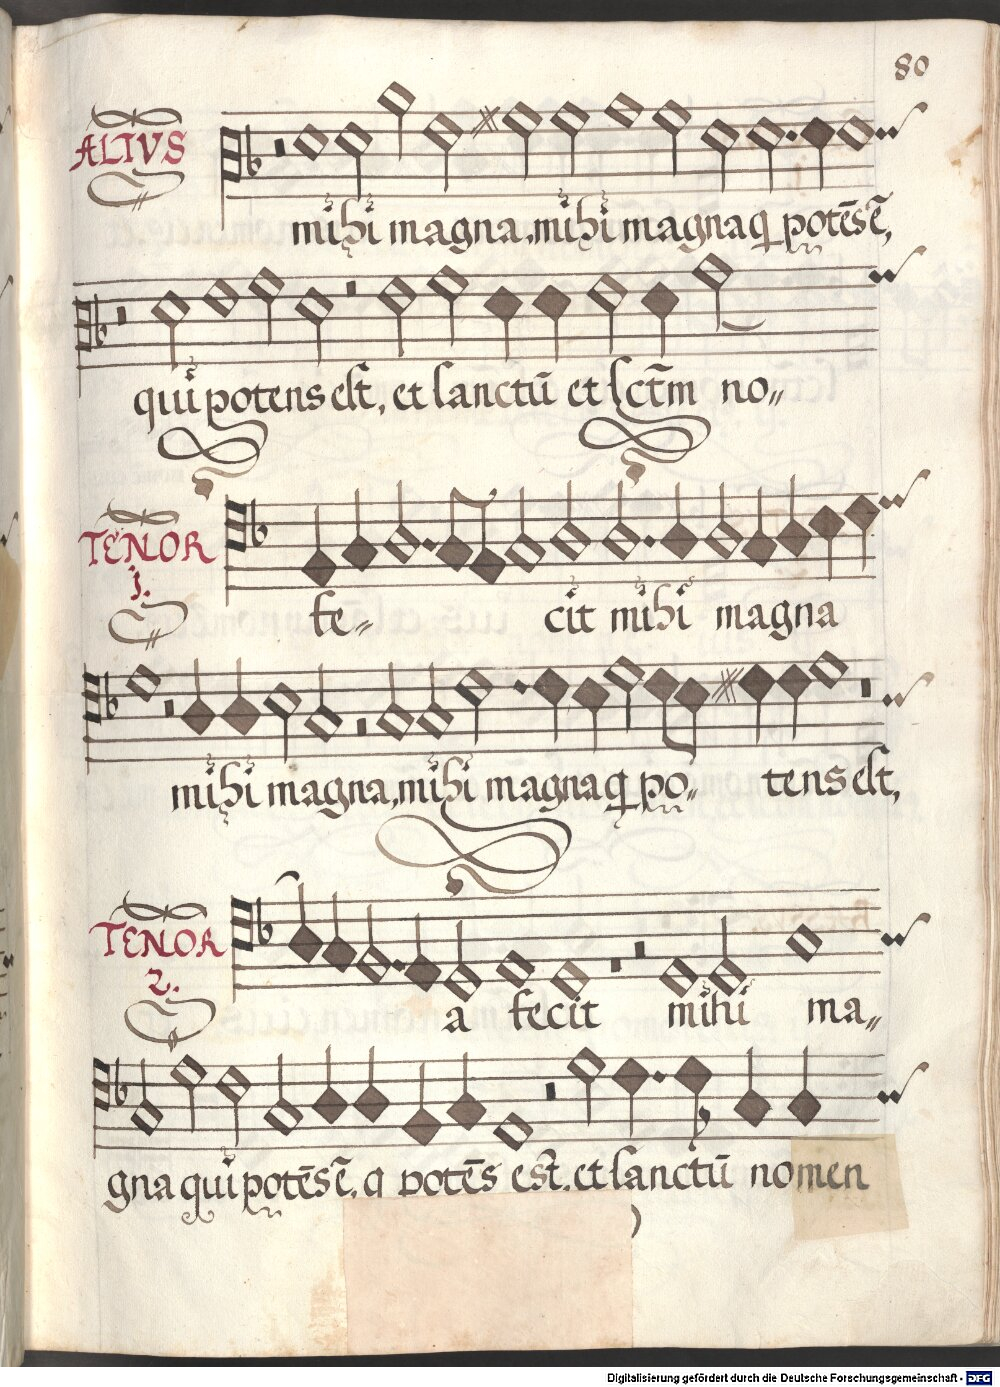 80
ALTVS
mihi magna, mihi magna q potēs ē,
qui potens est, et sanctū et sctm no-
TENOR
1.
fe- cit mihi magna
mihi magna, mihi magna q po- tens est,
TENOR
2.
a fecit mihi ma-
gna qui potēs ē, q potēs est, et sanctū nomen
Digitalisierung gefördert durch die Deutsche Forschungsgemeinschaft - DFG